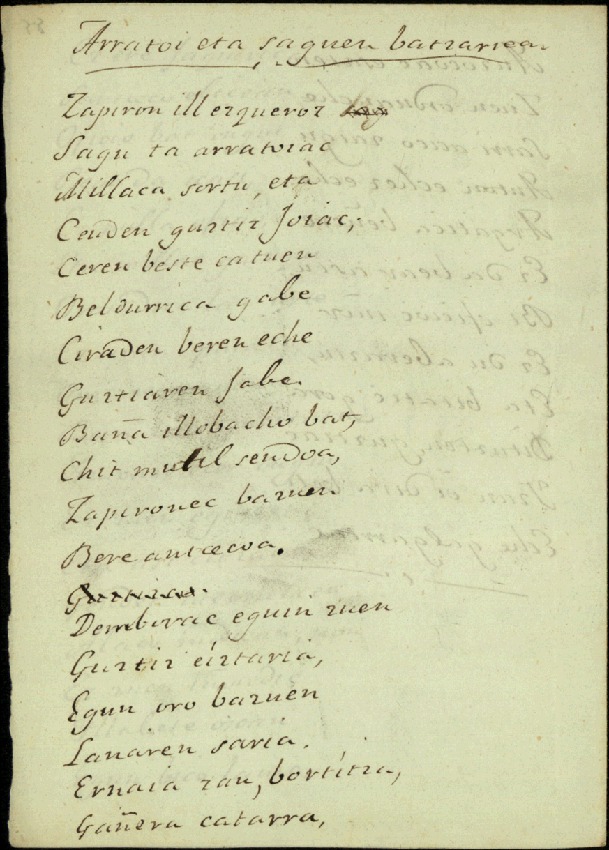 Arratoi eta saguen batzarrea.
Zapiron ill ezqueroz
Sagu ta arratoiac
Millaca sortu, eta
Ceuden guztiz Joiac;
Ceren beste catuen
Beldurrica gabe
Ciraden beren eche
Guztiaren Jabe.
Baña illobacho bat,
Chit mutil sendoa,
Zapironec bazuen
Bere antzecoa.
Guztiac.
Demborac eguin zuen
Guztiz eiztaria,
Egun oro bazuen
Lanaren saria.
Ernaia zan, bortitza,
Gañera catarra,